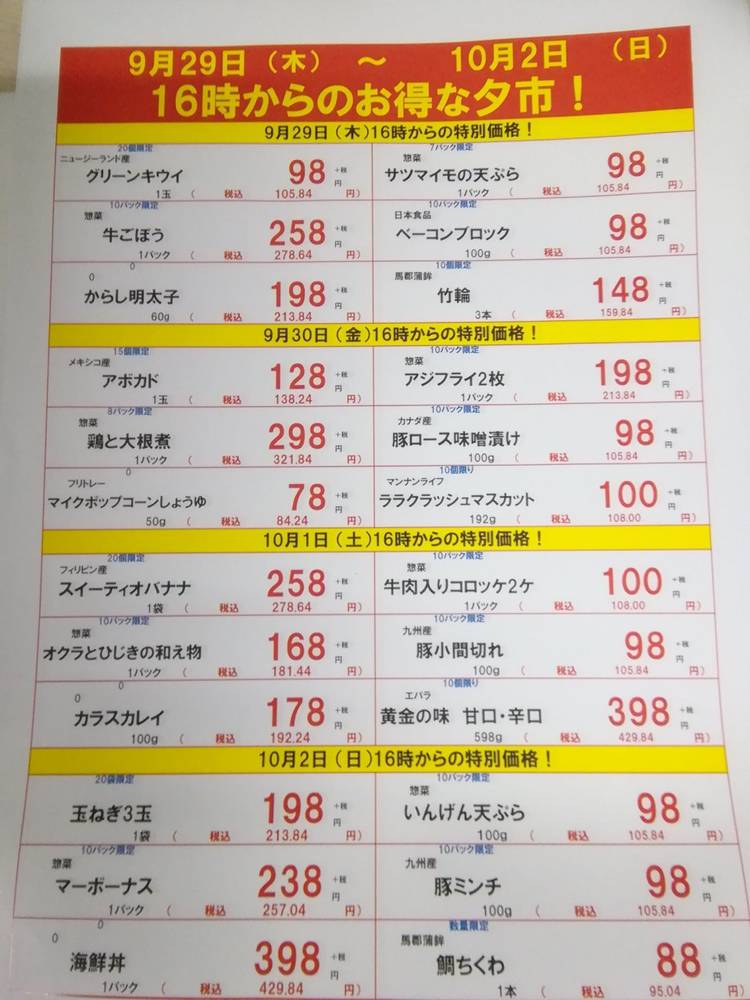 9月29日（木） ～ 10月2日（日）
16時からのお得な夕市！
9月29日（木）16時からの特別価格！
20個限定
ニュージーランド産
グリーンキウイ 98 +税 円
1玉 （ 税込 105.84 円）
7パック限定
惣菜
サツマイモの天ぷら 98 +税 円
1パック （ 税込 105.84 円）
10パック限定
惣菜
牛ごぼう 258 +税 円
1パック （ 税込 278.64 円）
10パック限定
日本食品
ベーコンブロック 98 +税 円
100g （ 税込 105.84 円）
0
0
からし明太子 198 +税 円
60g （ 税込 213.84 円）
10個限定
馬郡蒲鉾
竹輪 148 +税 円
3本 （ 税込 159.84 円）
9月30日（金）16時からの特別価格！
15個限定
メキシコ産
アボカド 128 +税 円
1玉 （ 税込 138.24 円）
10パック限定
惣菜
アジフライ2枚 198 +税 円
1パック （ 税込 213.84 円）
8パック限定
惣菜
鶏と大根煮 298 +税 円
1パック （ 税込 321.84 円）
10パック限定
カナダ産
豚ロース味噌漬け 98 +税 円
100g （ 税込 105.84 円）
0
フリトレー
マイクポップコーンしょうゆ 78 +税 円
50g （ 税込 84.24 円）
10個限り
マンナンライフ
ララクラッシュマスカット 100 +税 円
192g （ 税込 108.00 円）
10月1日（土）16時からの特別価格！
20個限定
フィリピン産
スイーティオバナナ 258 +税 円
1袋 （ 税込 278.64 円）
10パック限定
惣菜
牛肉入りコロッケ2ケ 100 +税 円
1パック （ 税込 108.00 円）
10パック限定
惣菜
オクラとひじきの和え物 168 +税 円
1パック （ 税込 181.44 円）
10パック限定
九州産
豚小間切れ 98 +税 円
100g （ 税込 105.84 円）
0
0
カラスカレイ 178 +税 円
100g （ 税込 192.24 円）
10個限り
エバラ
黄金の味 甘口・辛口 398 +税 円
598g （ 税込 429.84 円）
10月2日（日）16時からの特別価格！
20袋限定
玉ねぎ3玉 198 +税 円
1袋 （ 税込 213.84 円）
10パック限定
惣菜
いんげん天ぷら 98 +税 円
100g （ 税込 105.84 円）
10パック限定
惣菜
マーボーナス 238 +税 円
1パック （ 税込 257.04 円）
10パック限定
九州産
豚ミンチ 98 +税 円
100g （ 税込 105.84 円）
0
0
海鮮丼 398 +税 円
1パック （ 税込 429.84 円）
数量限定
馬郡蒲鉾
鯛ちくわ 88 +税 円
1本 （ 税込 95.04 円）